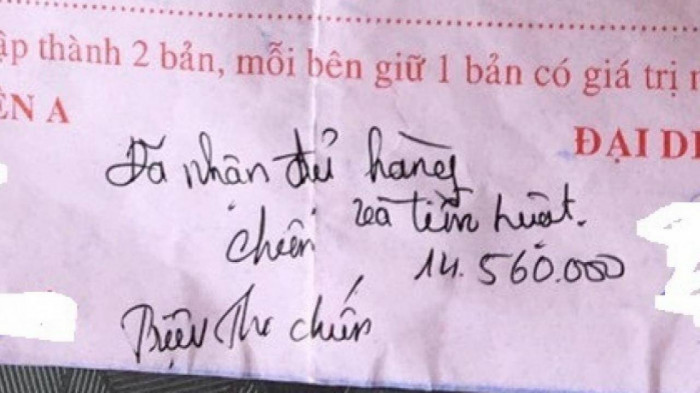 ập thành 2 bản, mỗi bên giữ 1 bản có giá trị n
ÊN A
ĐẠI DI
Đã nhận đủ hàng
và tiền
chiến 14.560.000
Triệu Thị chiến